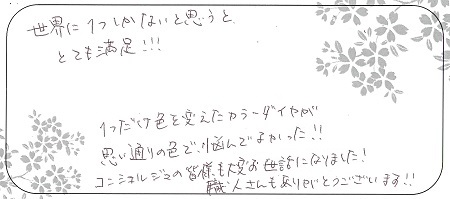 世界に1つしかないと思うと
とても満足!!!
1つだけ色を変えたカラーダイヤが
思い通りの色で、悩んでよかった!!
コニシヌルジマの皆様も大変お世話になりました!
職人さんもありがとうございます!!